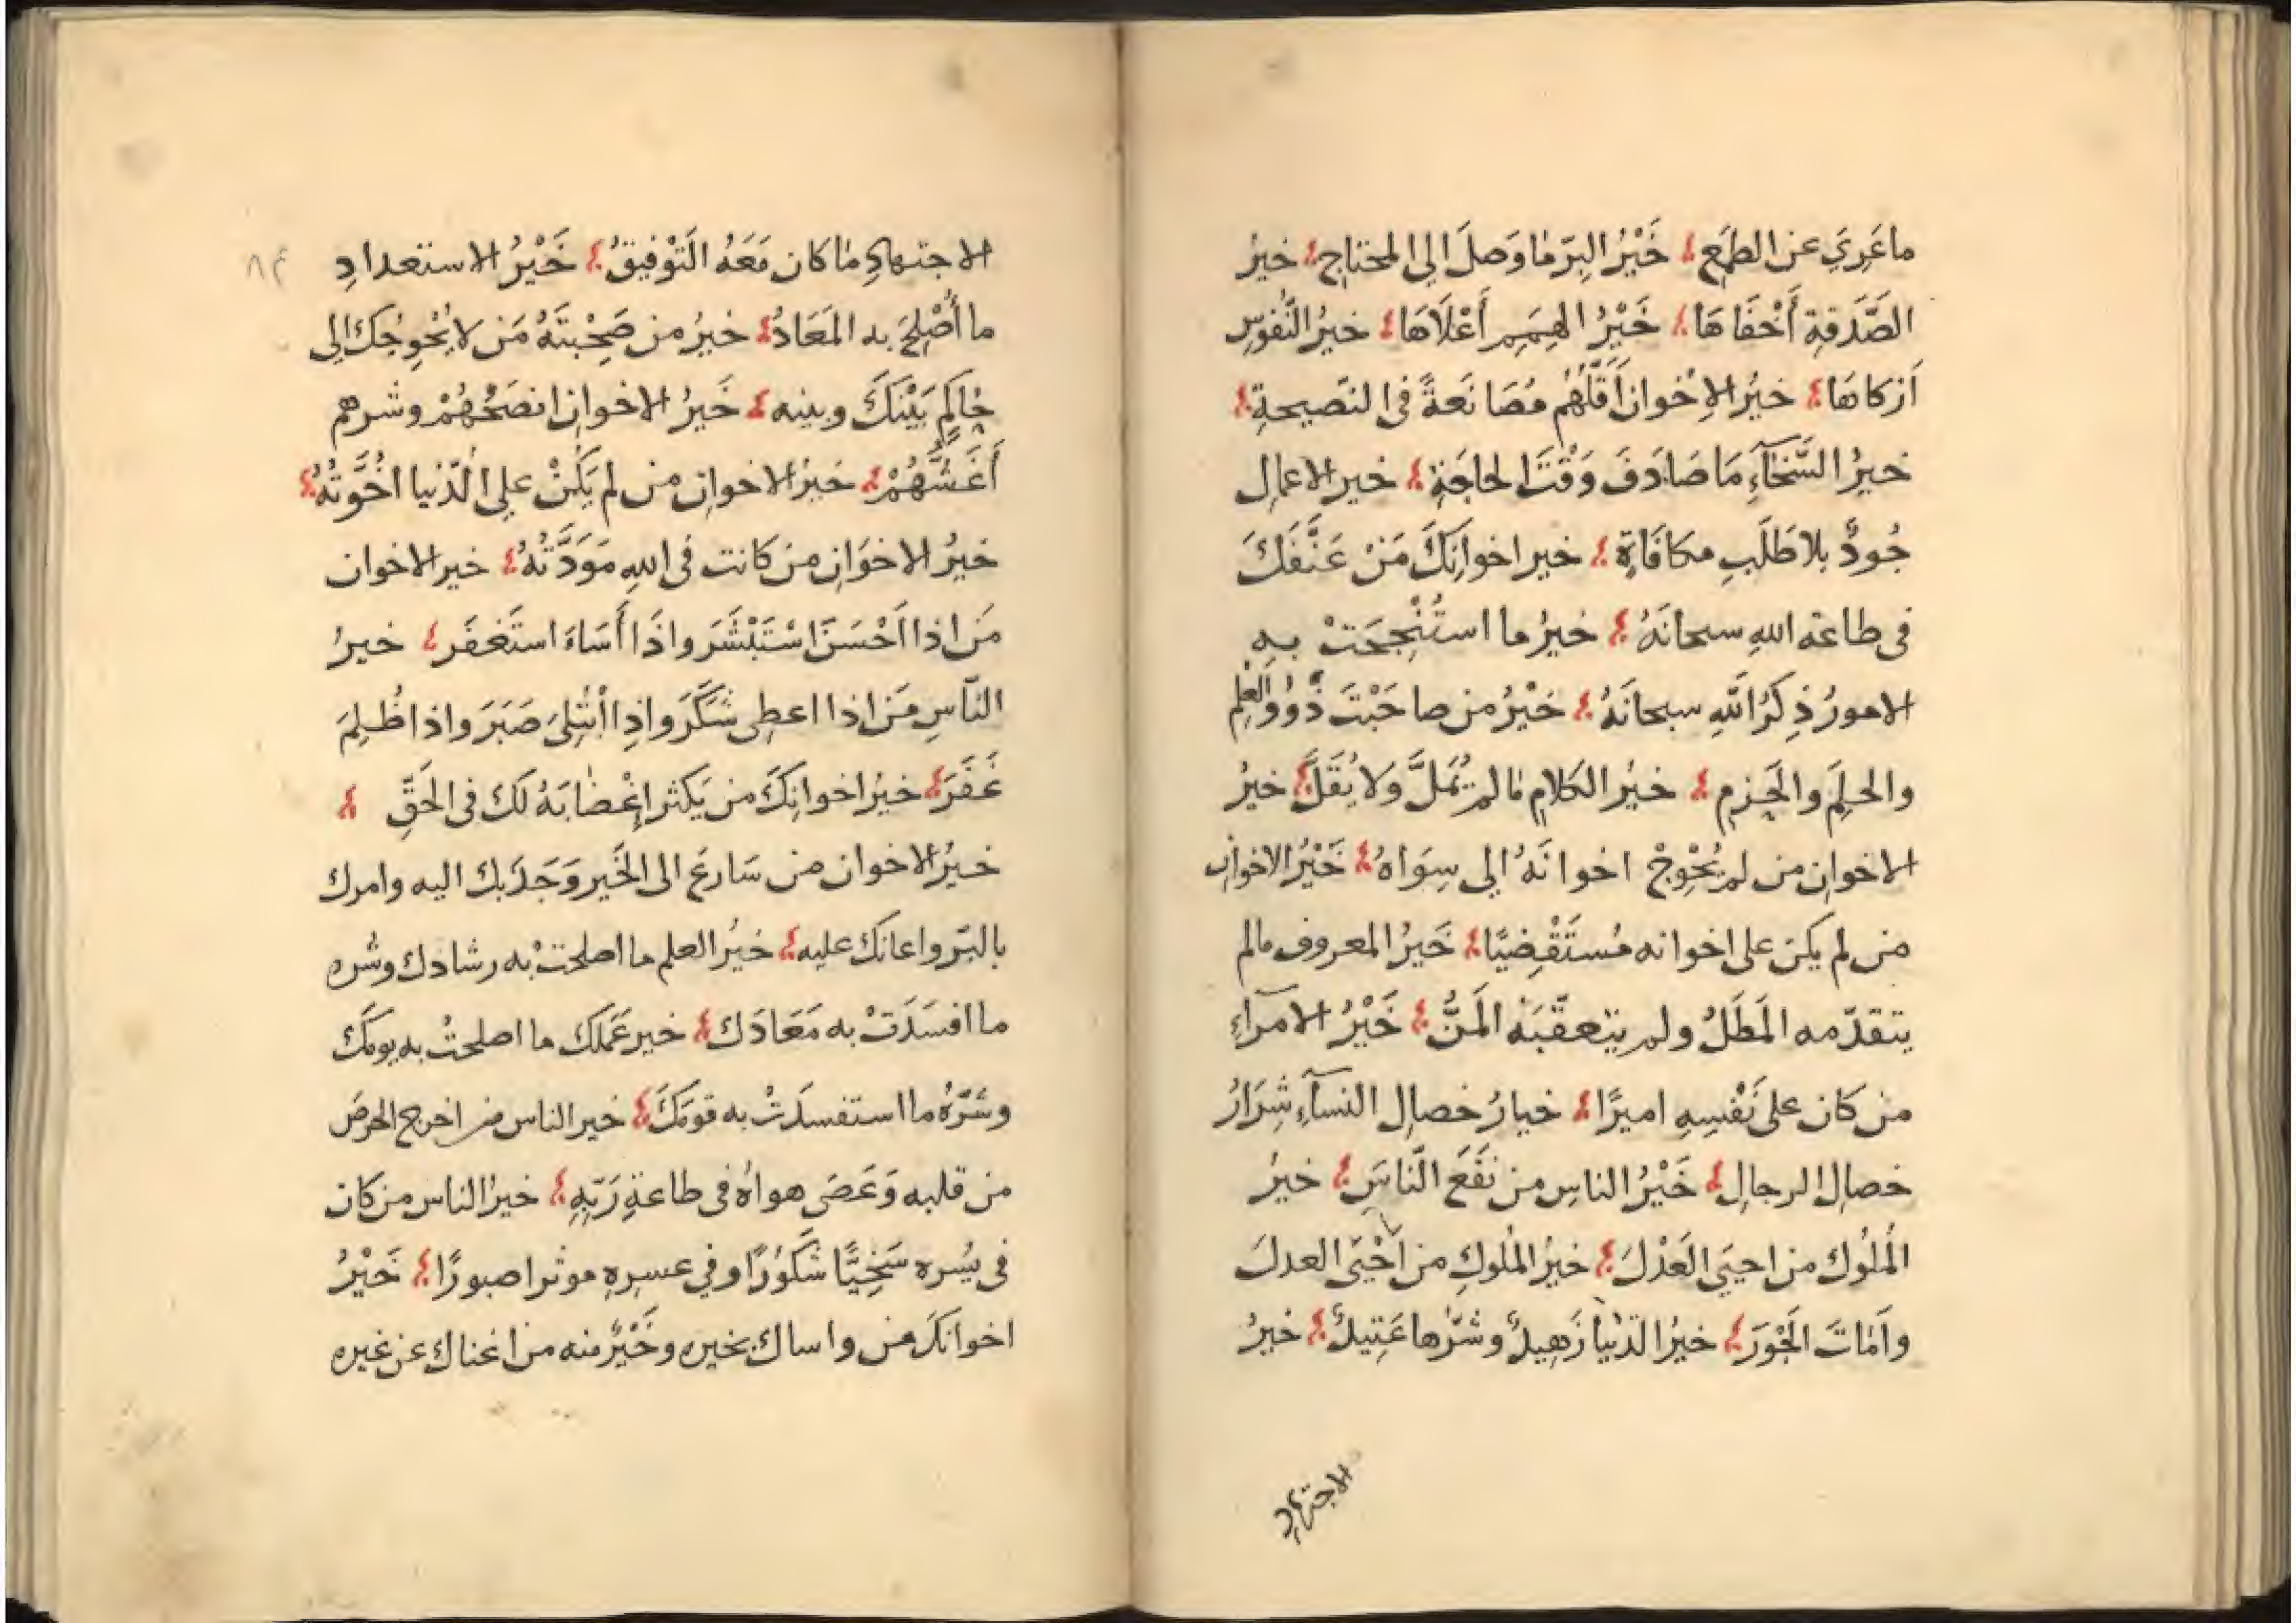 ما عَرِيَ عن الطمَع؛ خَيْرُ البِرّ ما وَصلَ الى المحتاجِ؛ خيرُ
الصَّدَقةِ أَخْفَاهَا؛ خَيْرُ الهِمَمِ أَعْلَاهَا؛ خيرُ النُّفوسِ
اَزكاهَا؛ خيرُ الاِخوانِ أَقَلُّهُم مُصَانَعةً فى النّصيحةِ؛
خيرُ السَّخآءِ مَا صَادَفَ وَقْتَ الحاجَةِ؛ خير الاعمالِ
جُودٌ بلا طَلَبِ مكافَاةٍ؛ خير اخوانِكَ مَنْ عَنَّفَكَ
فى طاعة اللهِ سبحانَهُ؛ خيرُ ما استُنْجِحَتْ بهِ
الامورُ ذِكرُ اللّهِ سبحانَهُ؛ خَيْرُ من صاحَبْتَ ذَوُوا العِلم
والحلِمِ والحَزمِ؛ خيرُ الكلامِ ما لم يُمَلَّ وَلا يُقَلَّ؛ خيرُ
الاخوانِ من لم يُحْوِجْ اخوانَهُ الى سِوَاهُ؛ خَيْرُ الاخوانِ
من لم يكن على اخوانه مُستَقْضِيًا؛ خَيرُ المعروف مالم
يتقدّمه المَطَلُ ولم يتعقّبَه المَنُّ؛ خَيْرُ الامرآءِ
من كان على نَفْسِهِ اميرًا؛ خيارُ خصالِ النسآءِ شِرَارُ
خصال الرجالِ؛ خَيْرُ الناسِ من نَفَعَ النّاسَ؛ خيرُ
المُلُوك من احيَى العَدْلَ؛ خيرُ المُلوكِ من اَحْيَى العدلَ
واَمَاتَ الجَوَرَ؛ خيرُ الدّنيا زَهِيدٌ وشرّها عَتِيدٌ؛ خيرُ
الاجتهادِ
الاجتهادِ ما كان مَعَهُ التَوْفِيقُ؛ خَيْرُ الاستعدادِ
ما أُصْلِحَ به المَعَادُ؛ خيرُ من صَحِبْتَهُ مَن لا يُحْوِجُكَ الى
حاكِمٍ بَيْنَكَ وبينه؛ خَيرُ الاخوانِ انصَحُهُمْ وشرهم
أَغَشُّهُمْ؛ خيرُ الاخوانِ من لم يَكُنْ على الدّنيا اُخُوَّتُهُ؛
خيرُ الاخوَانِ من كانت فى اللهِ مَوَدَّتُهُ؛ خير الاخوان
مَن اذا اَحْسَنَ اسْتَبْشَرَ واذَا أَسَاءَ استَغفَر؛ خيرُ
النّاسِ مَن اذا اعطِى شَكَرَ واذِا ابْتُلِىَ صَبَرَ واذا ظُلِمَ
غَفَرَ؛ خيرُ اخوانِكَ من يَكثر إِغْضابَهُ لَك فى الحَقِّ ؛
خيرُ الاخوان من سَارعَ الى الخَير وَجَذَبك اليه وامرك
بالبّر واعانَك عليه؛ خيرُ العلم ما اصلحتْ به رشادك وشره
ما افسَدَتْ به مَعَادَك؛ خير عَمَلك ما اصلحتْ به يومَكَ
وشرّهُ ما استفسدَتْ به قومَكَ؛ خير الناس من اخرج الحرصَ
من قلبه وَعَصَى هواهُ فى طاعةِ رَبّهِ؛ خيرُ الناس من كان
فى يُسره سَخِيًّا شكَورًا وفي عسرِهِ موثرا صبورًا؛ خَيْرُ
اخوانكَ من واساك بخيره وخَيْرٌ منه من اغناك عن غيره